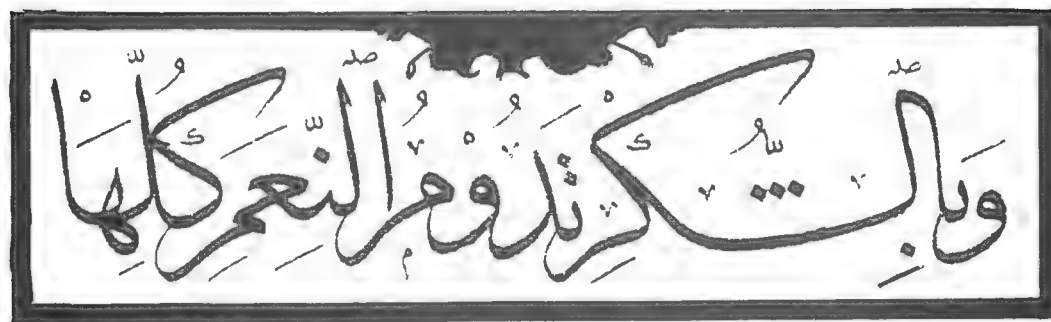 وَبِالشُّكْرِ تَدُوْمُ النِّعَمِ كُلُّهَا